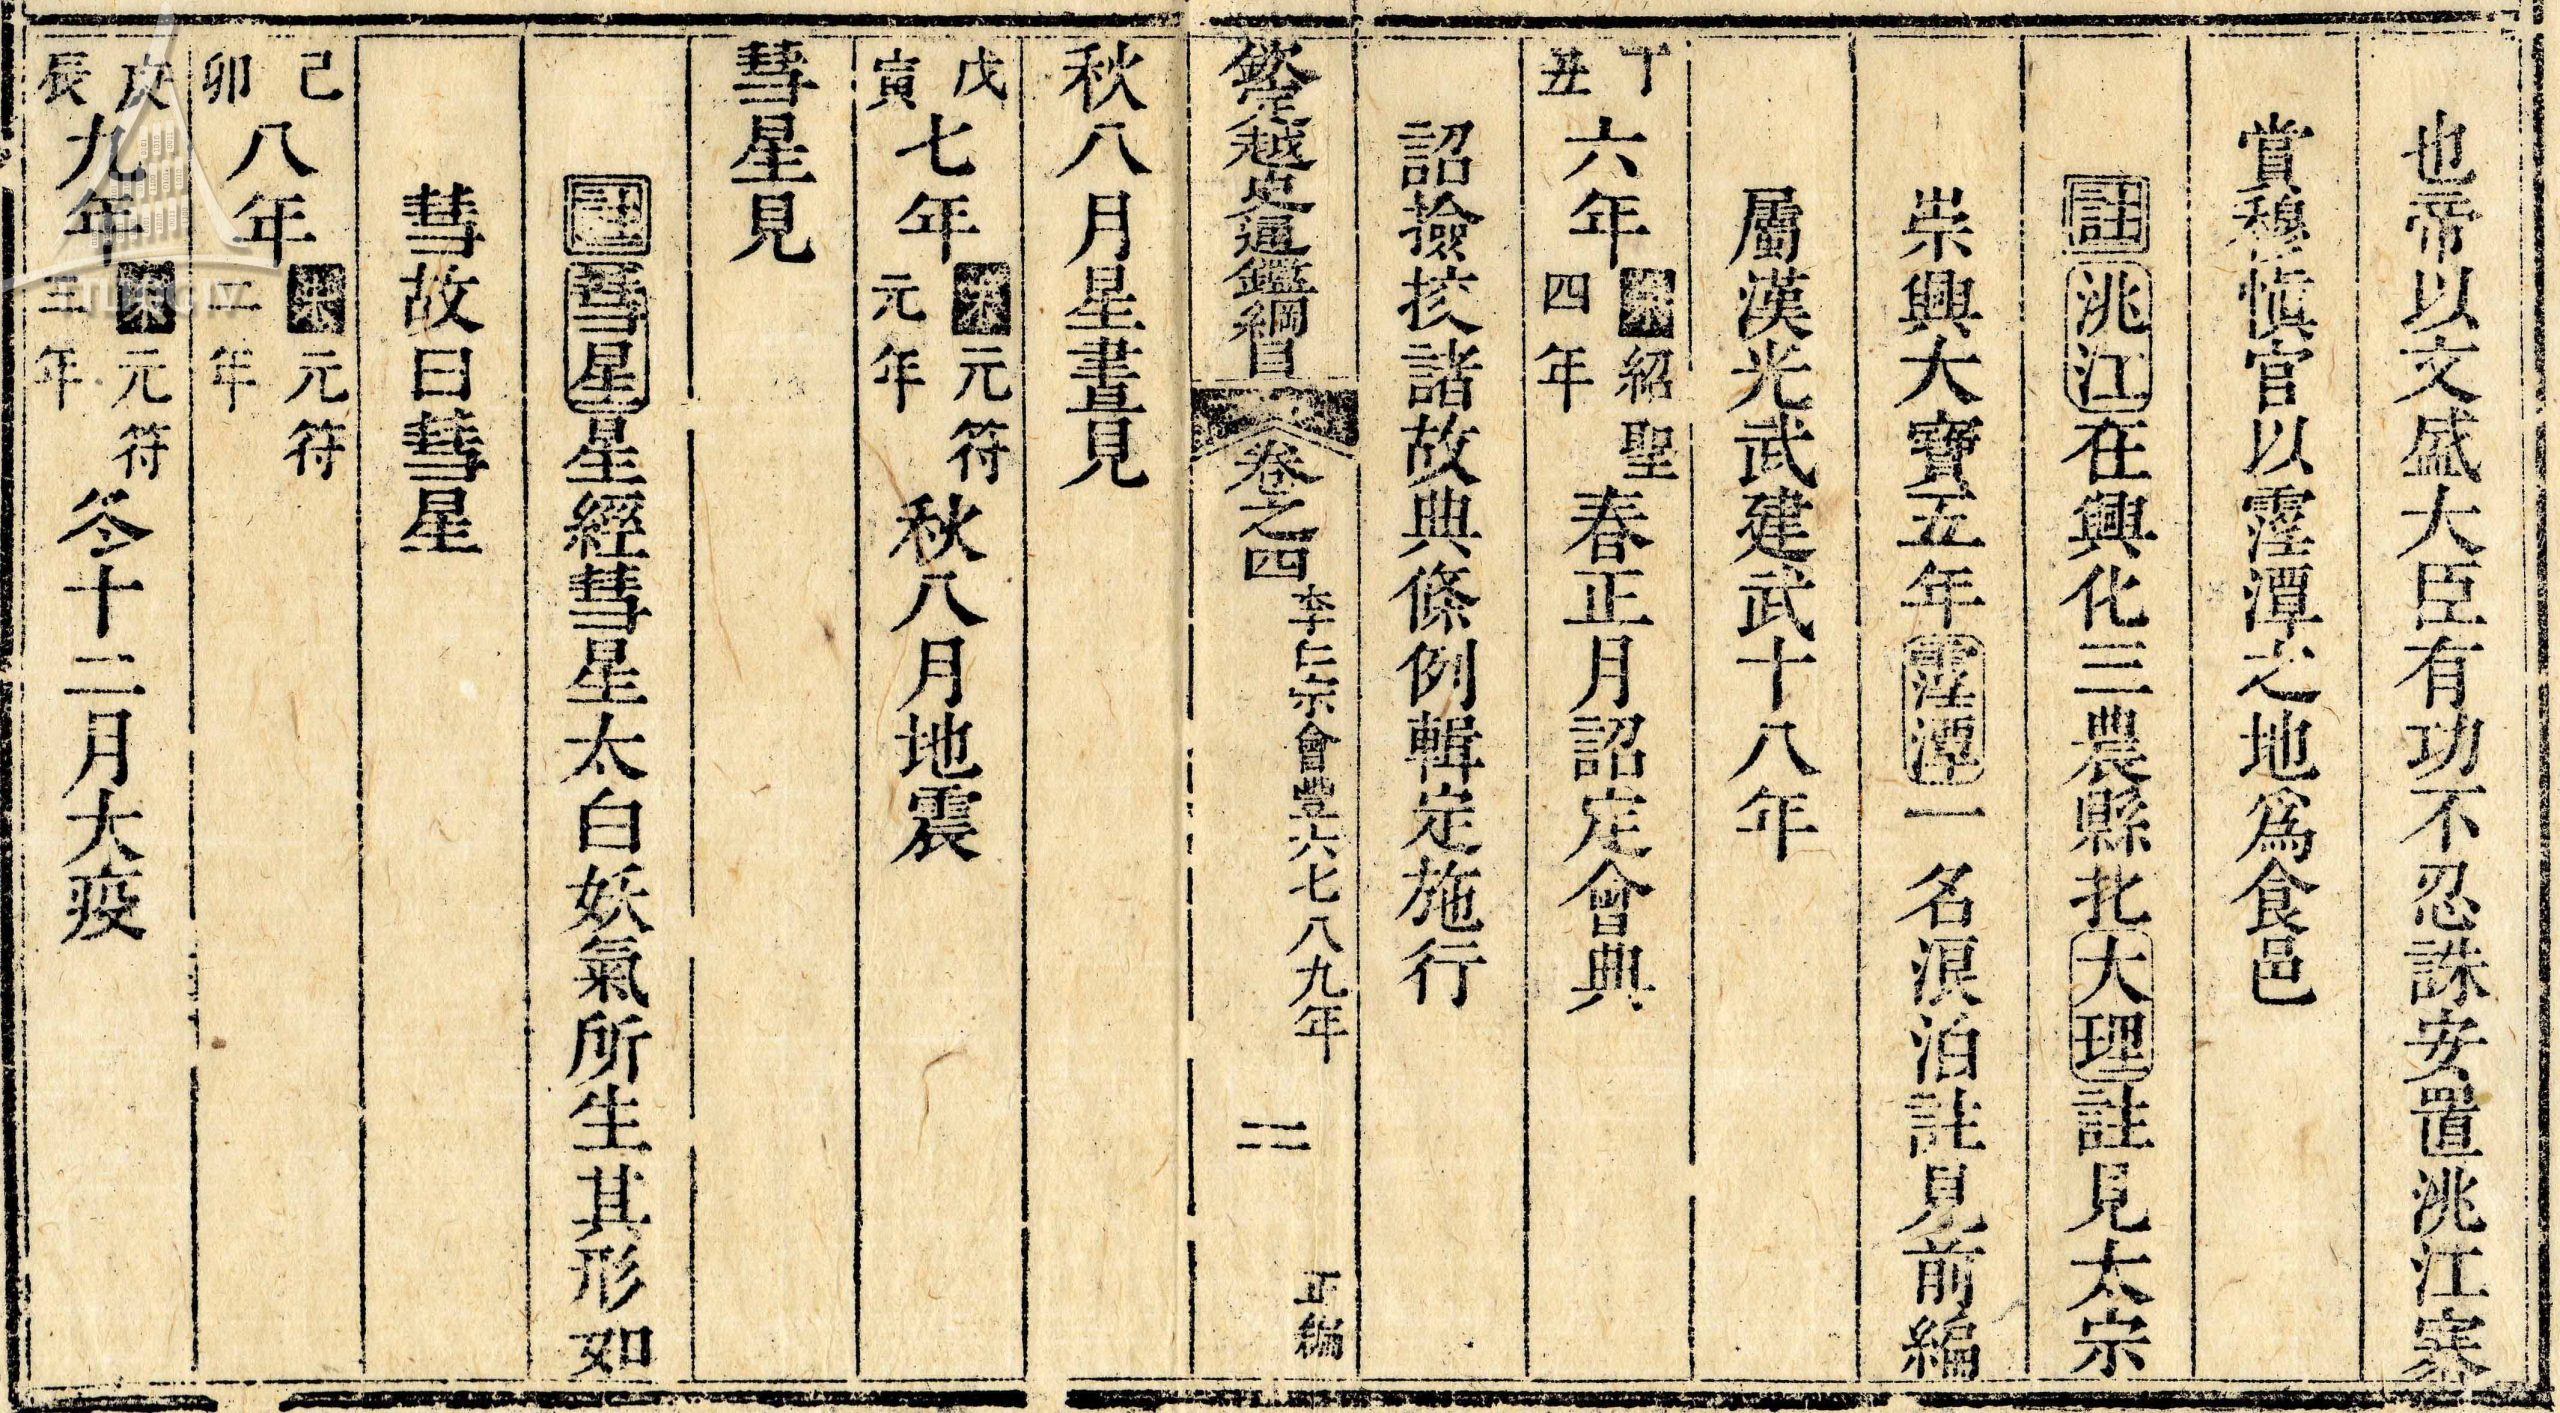 也帝以文盛大臣有功不忍誅安置洮江寨
賞穆慎官以霪潭之地爲食邑
註洮江在興化三農縣北大理註見太宗
崇興大寶五年霪潭一名溟泊註見前編
屬漢光武建武十八年
丁丑六年宋紹聖四年春正月詔定會典
詔撿挍諸故典條例輯定施行
欽定越史通鑑綱目卷之四 李仁宗會豐六七八九年 二 正編
秋八月星晝見
戊寅七年宋元符元年秋八月地震
彗星見
註彗星星經彗星太白妖氣所生其形如
彗故曰彗星
己卯八年宋元符二年
庚辰九年宋元符三年冬十二月大疫